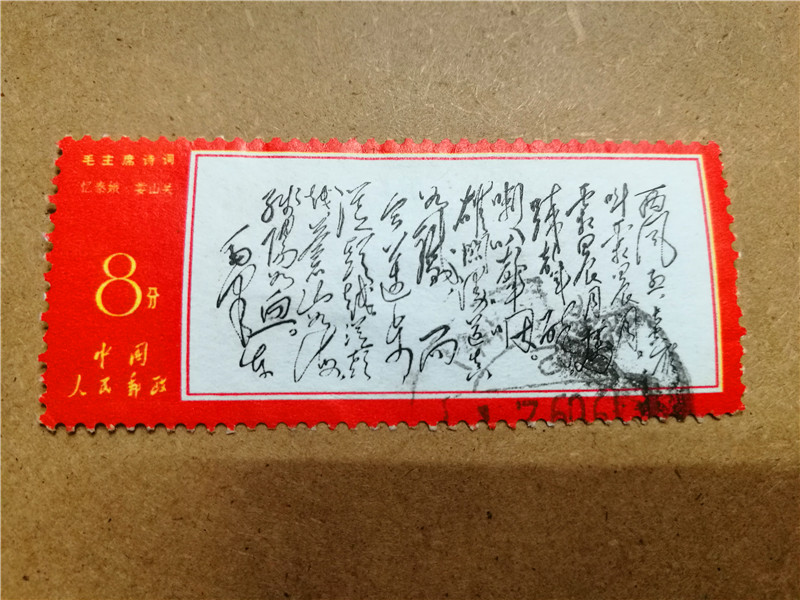 毛主席诗词
忆秦娥 娄山关
8分
中国
人民邮政
西风烈
叫霜晨月。
霜晨月马
蹄声碎
喇叭声咽。
雄关漫道真
如铁 而
今迈步
从头越从头
越苍山如海
残阳如血。
毛泽东